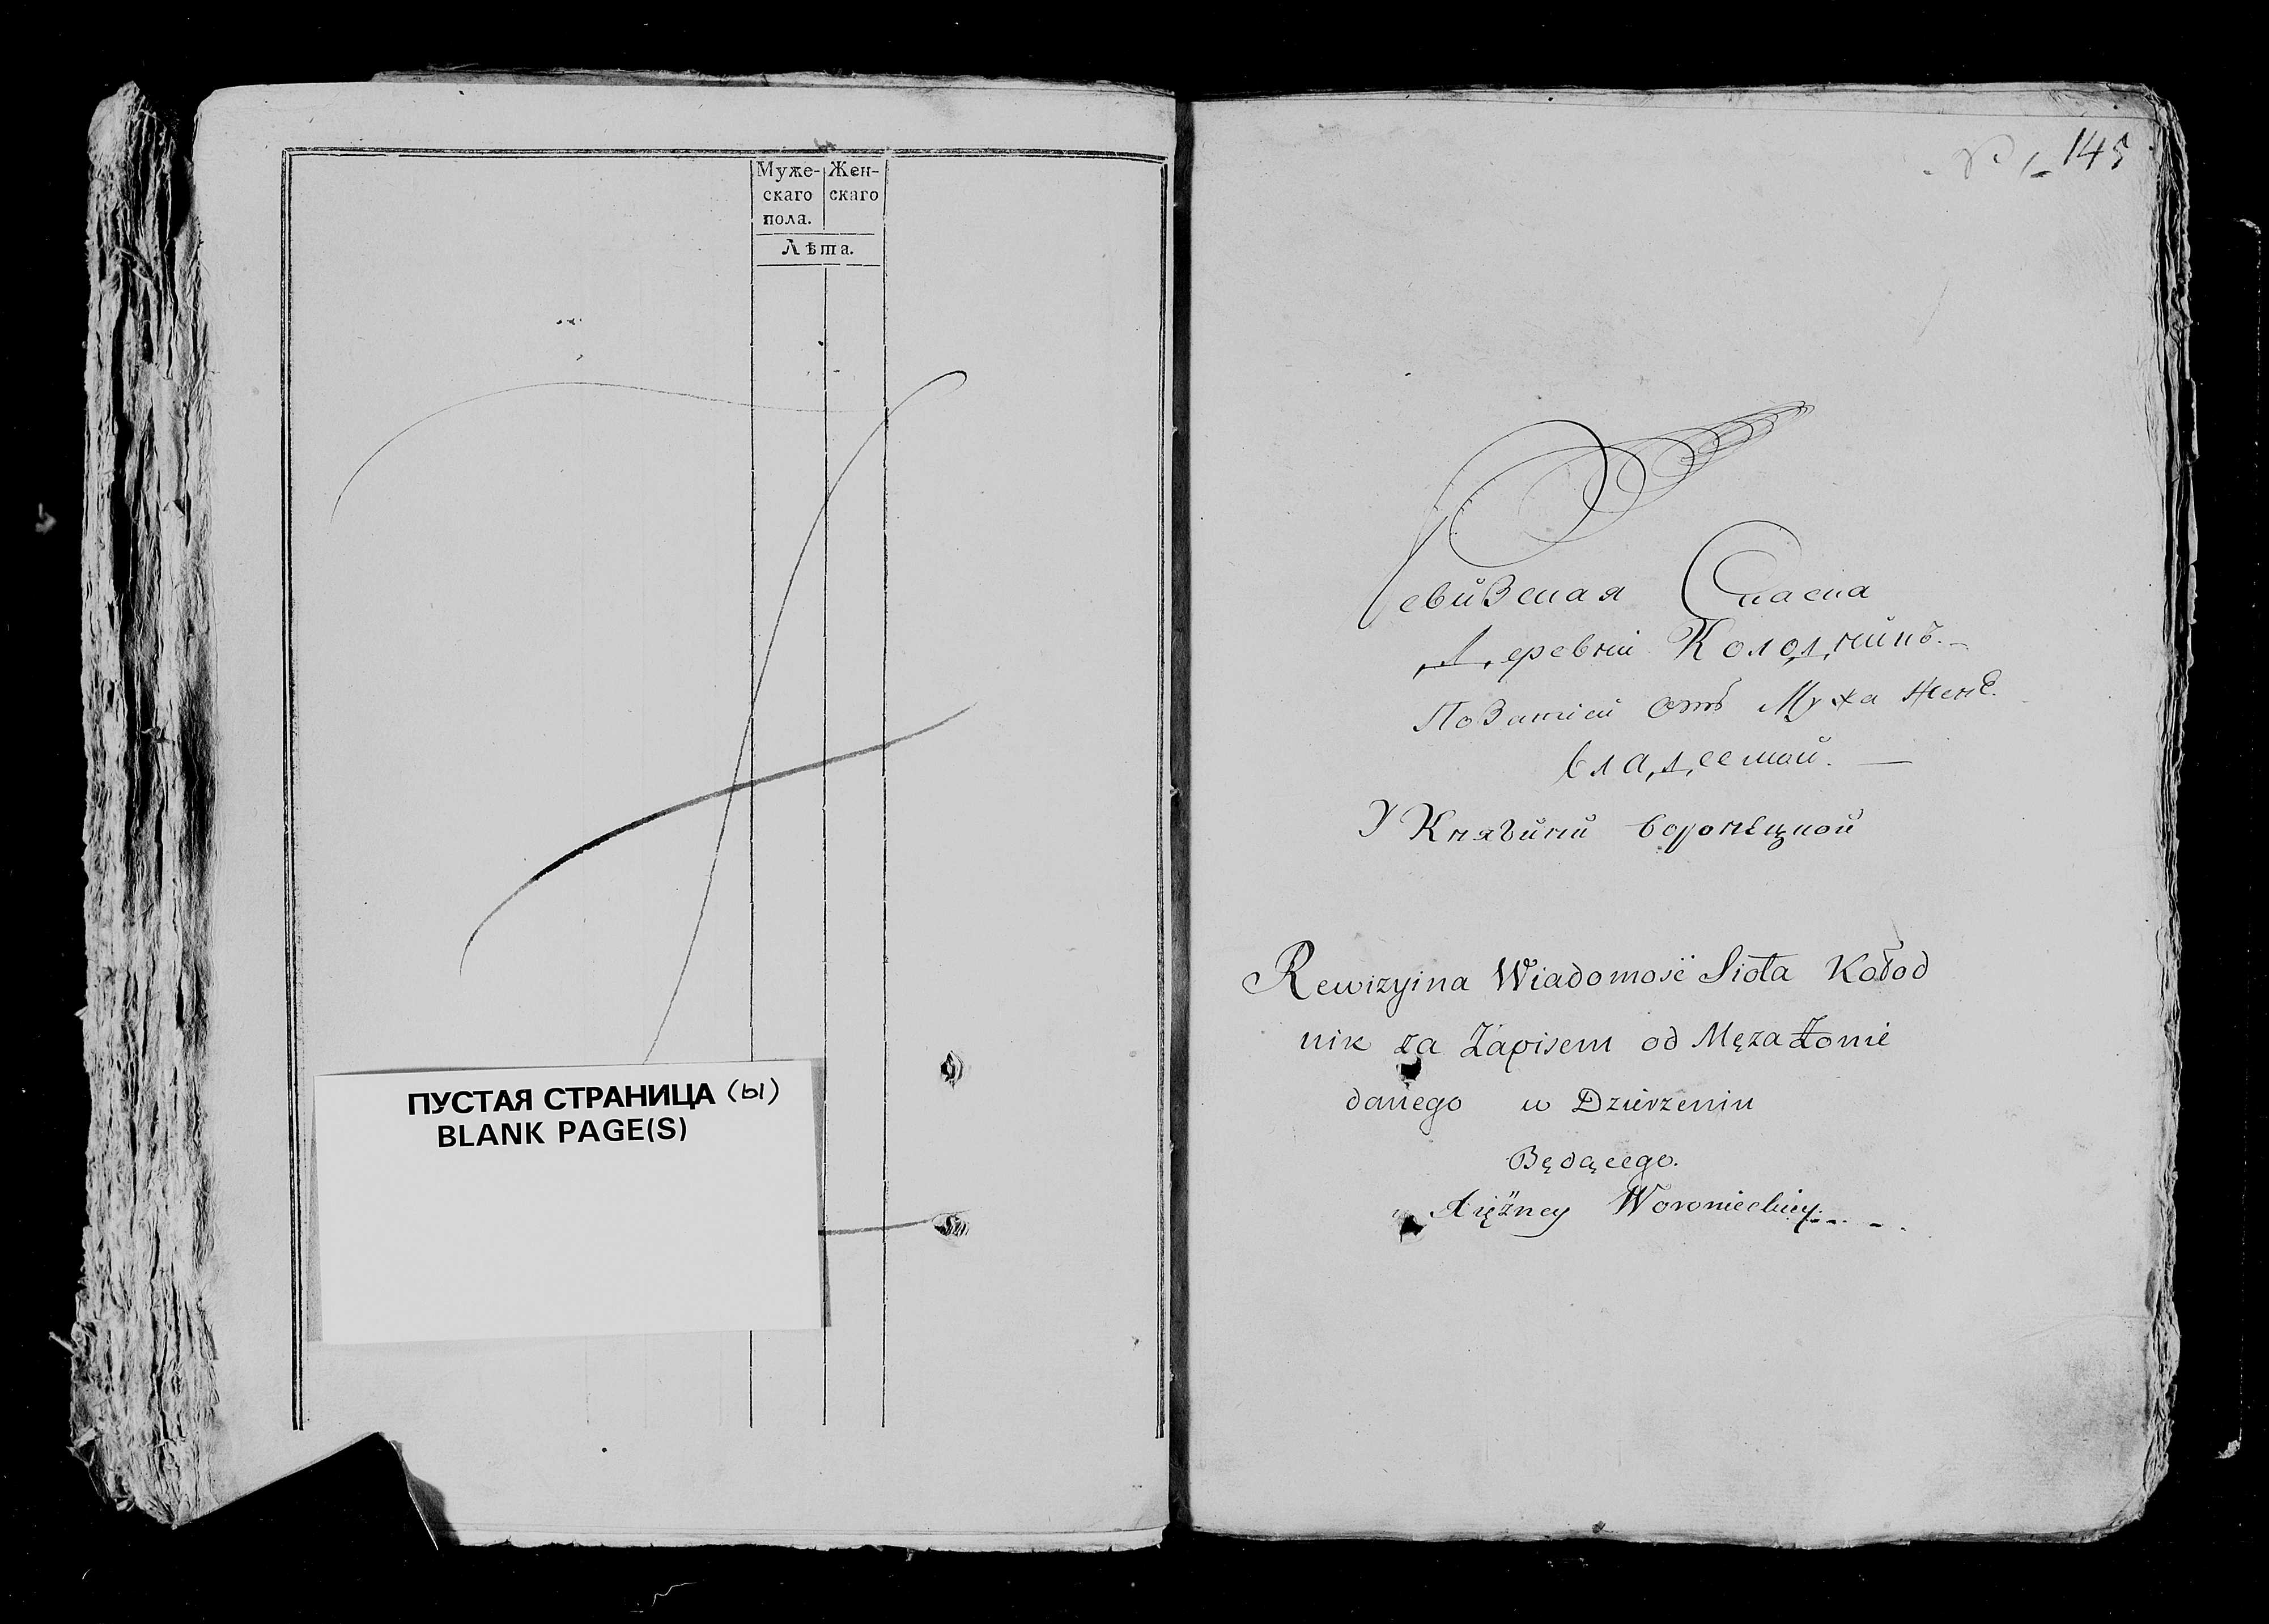 Муже-
скаго
пола.
Жен-
скаго
Лѣта.
ПУСТАЯ СТРАНИЦА (ы)
BLANK PAGE(S)
145
Ревйзская Сказка
Деревнй Колоднйкъ.
отъ Мужа Женѣ.
владеемой.
У Княгйнй Воронѣцкой
Rewizyina Wiadomość Sioła Kołod
nik za Zapisem od Męża Żonie
danego w Dzierzeniu
Będącego.
Xiężney Woronieckiey